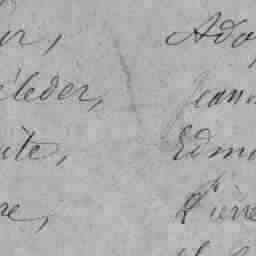 ur, Ado
éleder, Jean
ite, Edm
re, Pierre